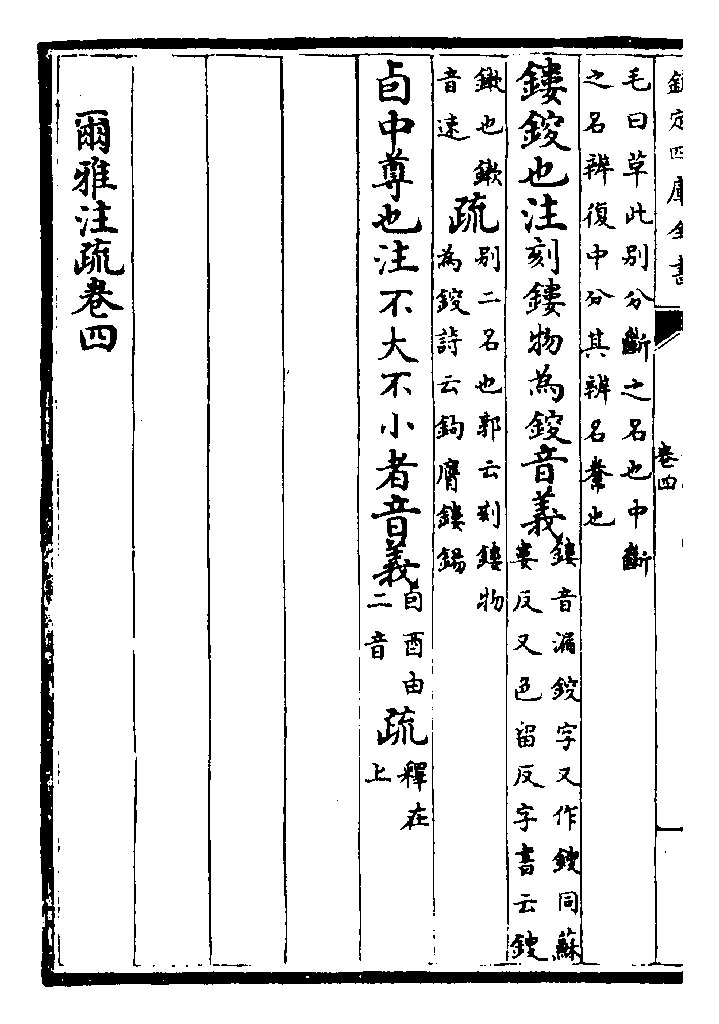 欽定四庫全書
卷四
毛曰草此别分斷之名也中斷
之名辨復中分其辨名䊆也
鏤鋑也注刻鏤物為鋑音義
鏤音漏鋑字又作鎪同蘇
婁反又色留反字書云鎪
鏉也鏉
音速
疏
别二名也郭云刻鏤物
為鋑詩云鉤膺鏤鍚
卣中尊也注不大不小者音義
卣酉由
二音
疏
釋在
上
爾雅注疏卷四